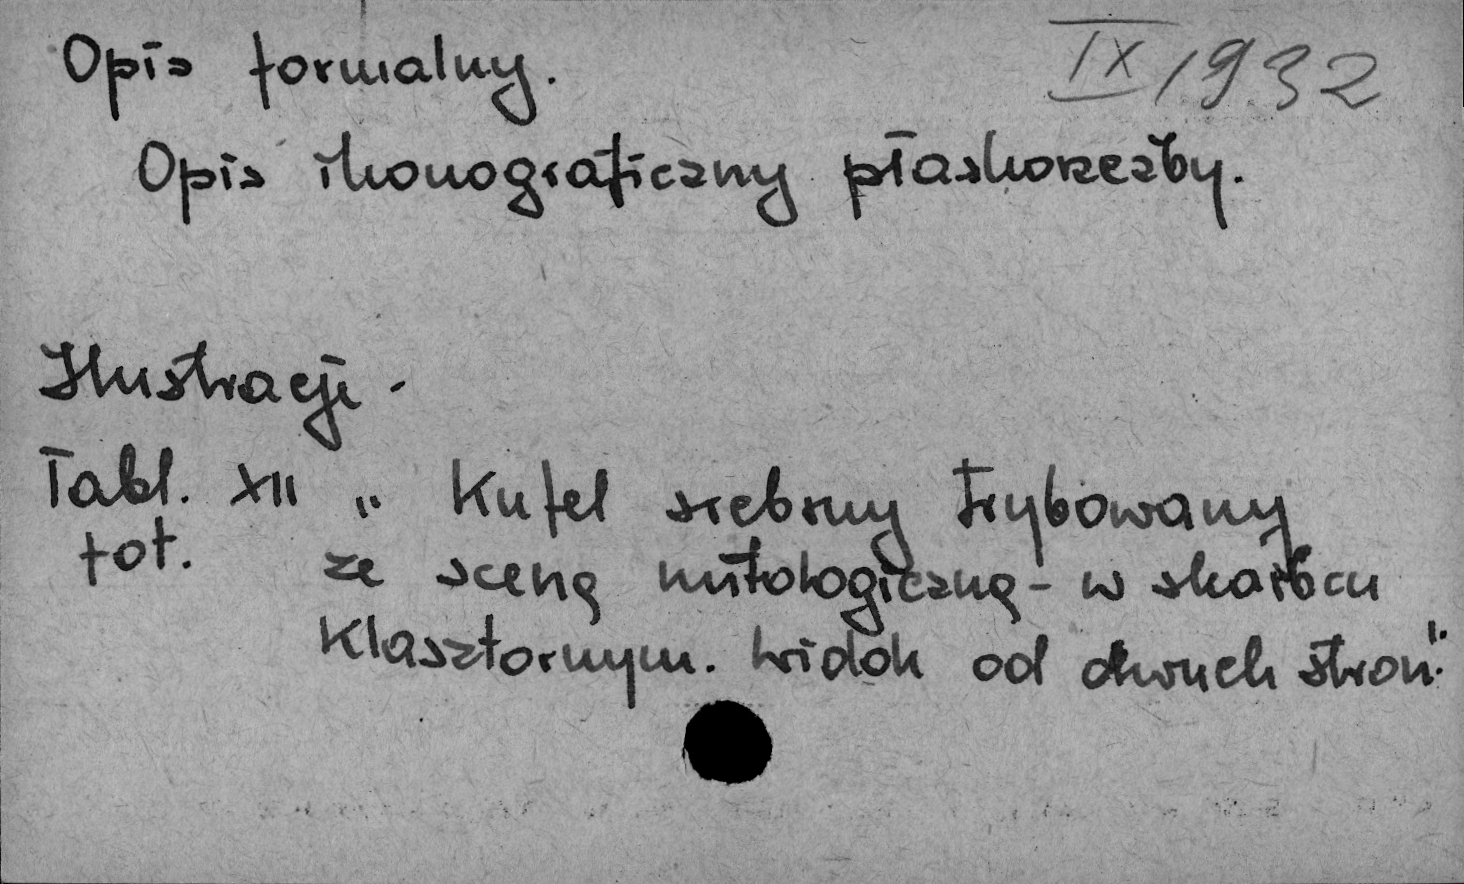 Opis formalny. IX 1932
Opis ikonograficzny płaskorzeźby.
Ilustracje -
Tabl. XII „ Kufel srebrny trybowany
fot. ze sceną mitologiczną - w skarbcu
Klasztornym. Widok od dwuch stron."